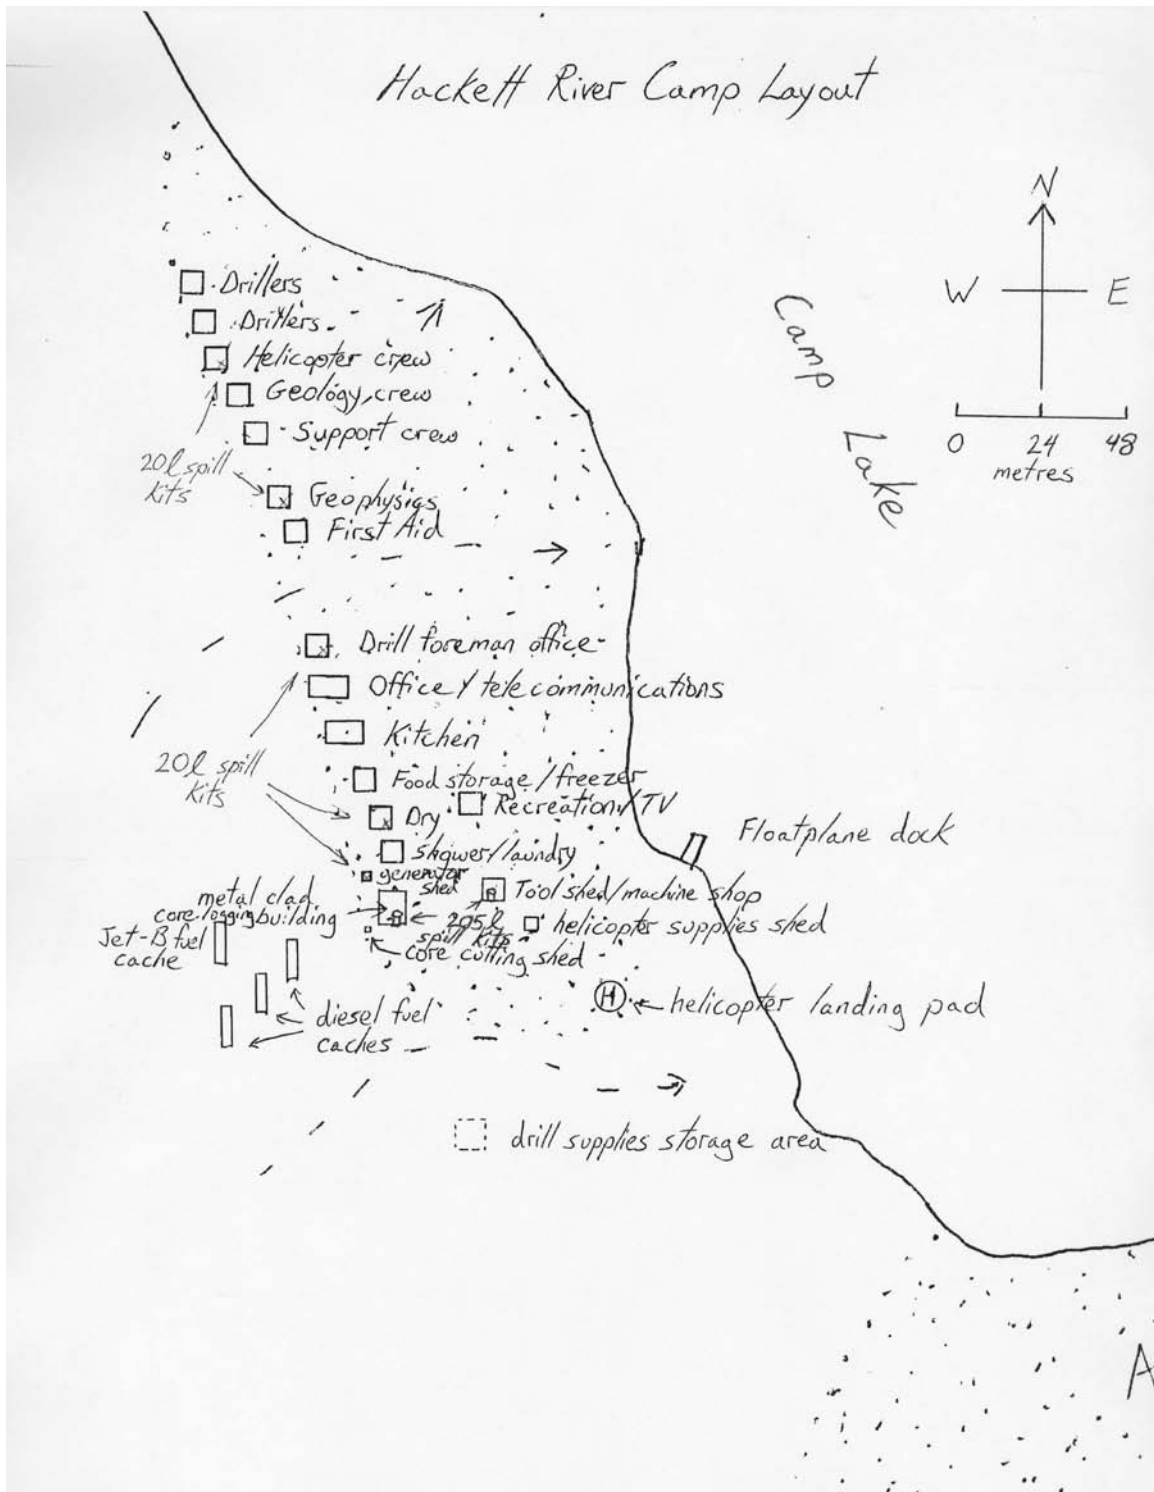 Hackett River Camp Layout
N
W E
0 24 48
metres
Camp
Lake
Drillers
Drillers
Helicopter crew
Geology crew
Support crew
20l spill
kits
Geophysics
First Aid
Drill foreman office
Office / telecommunications
Kitchen
20l spill
kits
Food storage / freezer
Recreation / TV
Dry
Floatplane dock
Shower/laundry
generator
shed
Tool shed/machine shop
metal clad
core logging building
205l
spill kits
helicopter supplies shed
Jet-B fuel
cache
core cutting shed
H
helicopter landing pad
diesel fuel
caches
drill supplies storage area
A